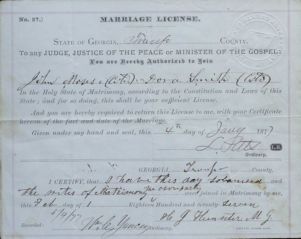 No. 37.] MARRIAGE LICENSE.
STATE OF GEORGIA, Troup COUNTY.
To any JUDGE, JUSTICE OF THE PEACE or MINISTER OF THE GOSPEL:
You are Hereby Authorized to Join
John Moses (Col'd) & Dora Smith (Col'd)
In the Holy State of Matrimony, according to the Constitution and Laws of this
State; and for so doing, this shall be your sufficient License.
And you are hereby required to return this License to me, with your Certificate
hereon of the fact and date of the Marriage.
Given under my hand and seal, this 4th day of Jany 1877
Ordinary.
GEORGIA Troup County.
I CERTIFY, that I have this day solemnized
the rites of Matrimony were joined in Matrimony by me,
this day of Eighteen Hundred and Seventy Seven
Recorded:
Ordinary